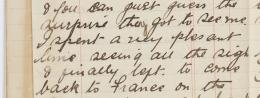 & you can just guess the
surprise they got to see me.
I spent a very plesant
time seeing all the sigh
& finally left to come
back to France on the